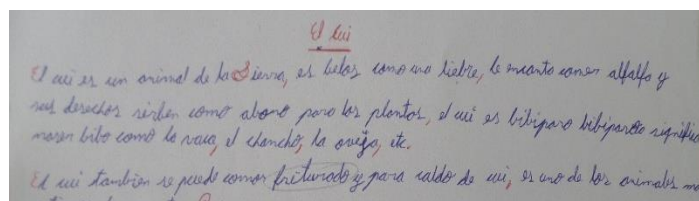 El cui
El cui es un animal de la Sierra, es belos como una liebre, le encanta comer alfalfa y
sus desechos sirben como abono para las plantas, el cui es bibiparo bibiparo significa
nasen bibo como la vaca, el chancho, la oveja, etc.
El cui tambien se puede comer friturado y para caldo de cui, es uno de los animales